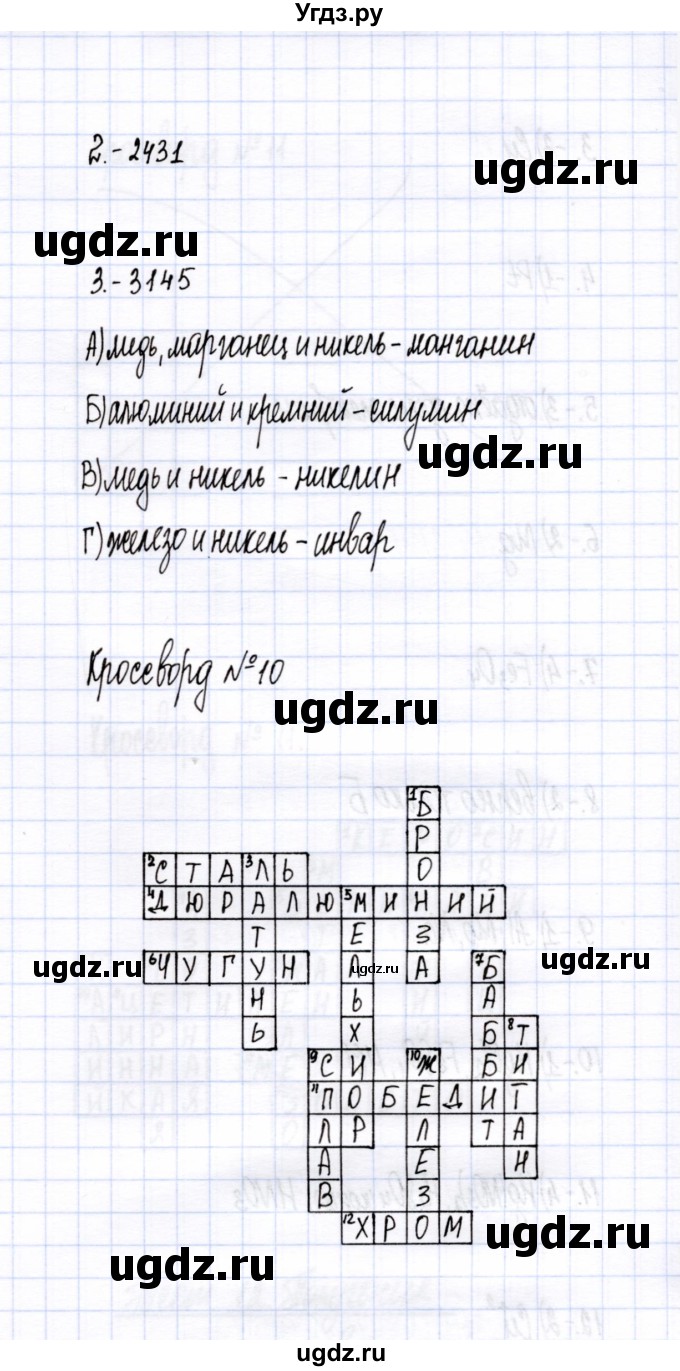 Угдз.ру
2.-2431
ugdz.ru
ugdz.ru
3.-3145
А) медь, марганец и никель - манганин
Б) алюминий и кремний - силумин
ugdz.ru
В) медь и никель - никелин
Г) железо и никель - инвар
Кроссворд №10
ugdz.ru
1Б
Р
2С Т А 3Л Ь О
4Д Ю Р А Л Ю 5М И Н И Й
Т Е З
6Ч У Г У Н Л А 7Б
ugdz.ru
ugdz.ru
ugdz.ru
Н Ь А
Ь Х Б 8Т
9С И 10Ж Б И
11П О Б Е Д И Т
Л Р Л Т А
А Е Н
В З
12Х Р О М
ugdz.ru
ugdz.ru
ugdz.ru